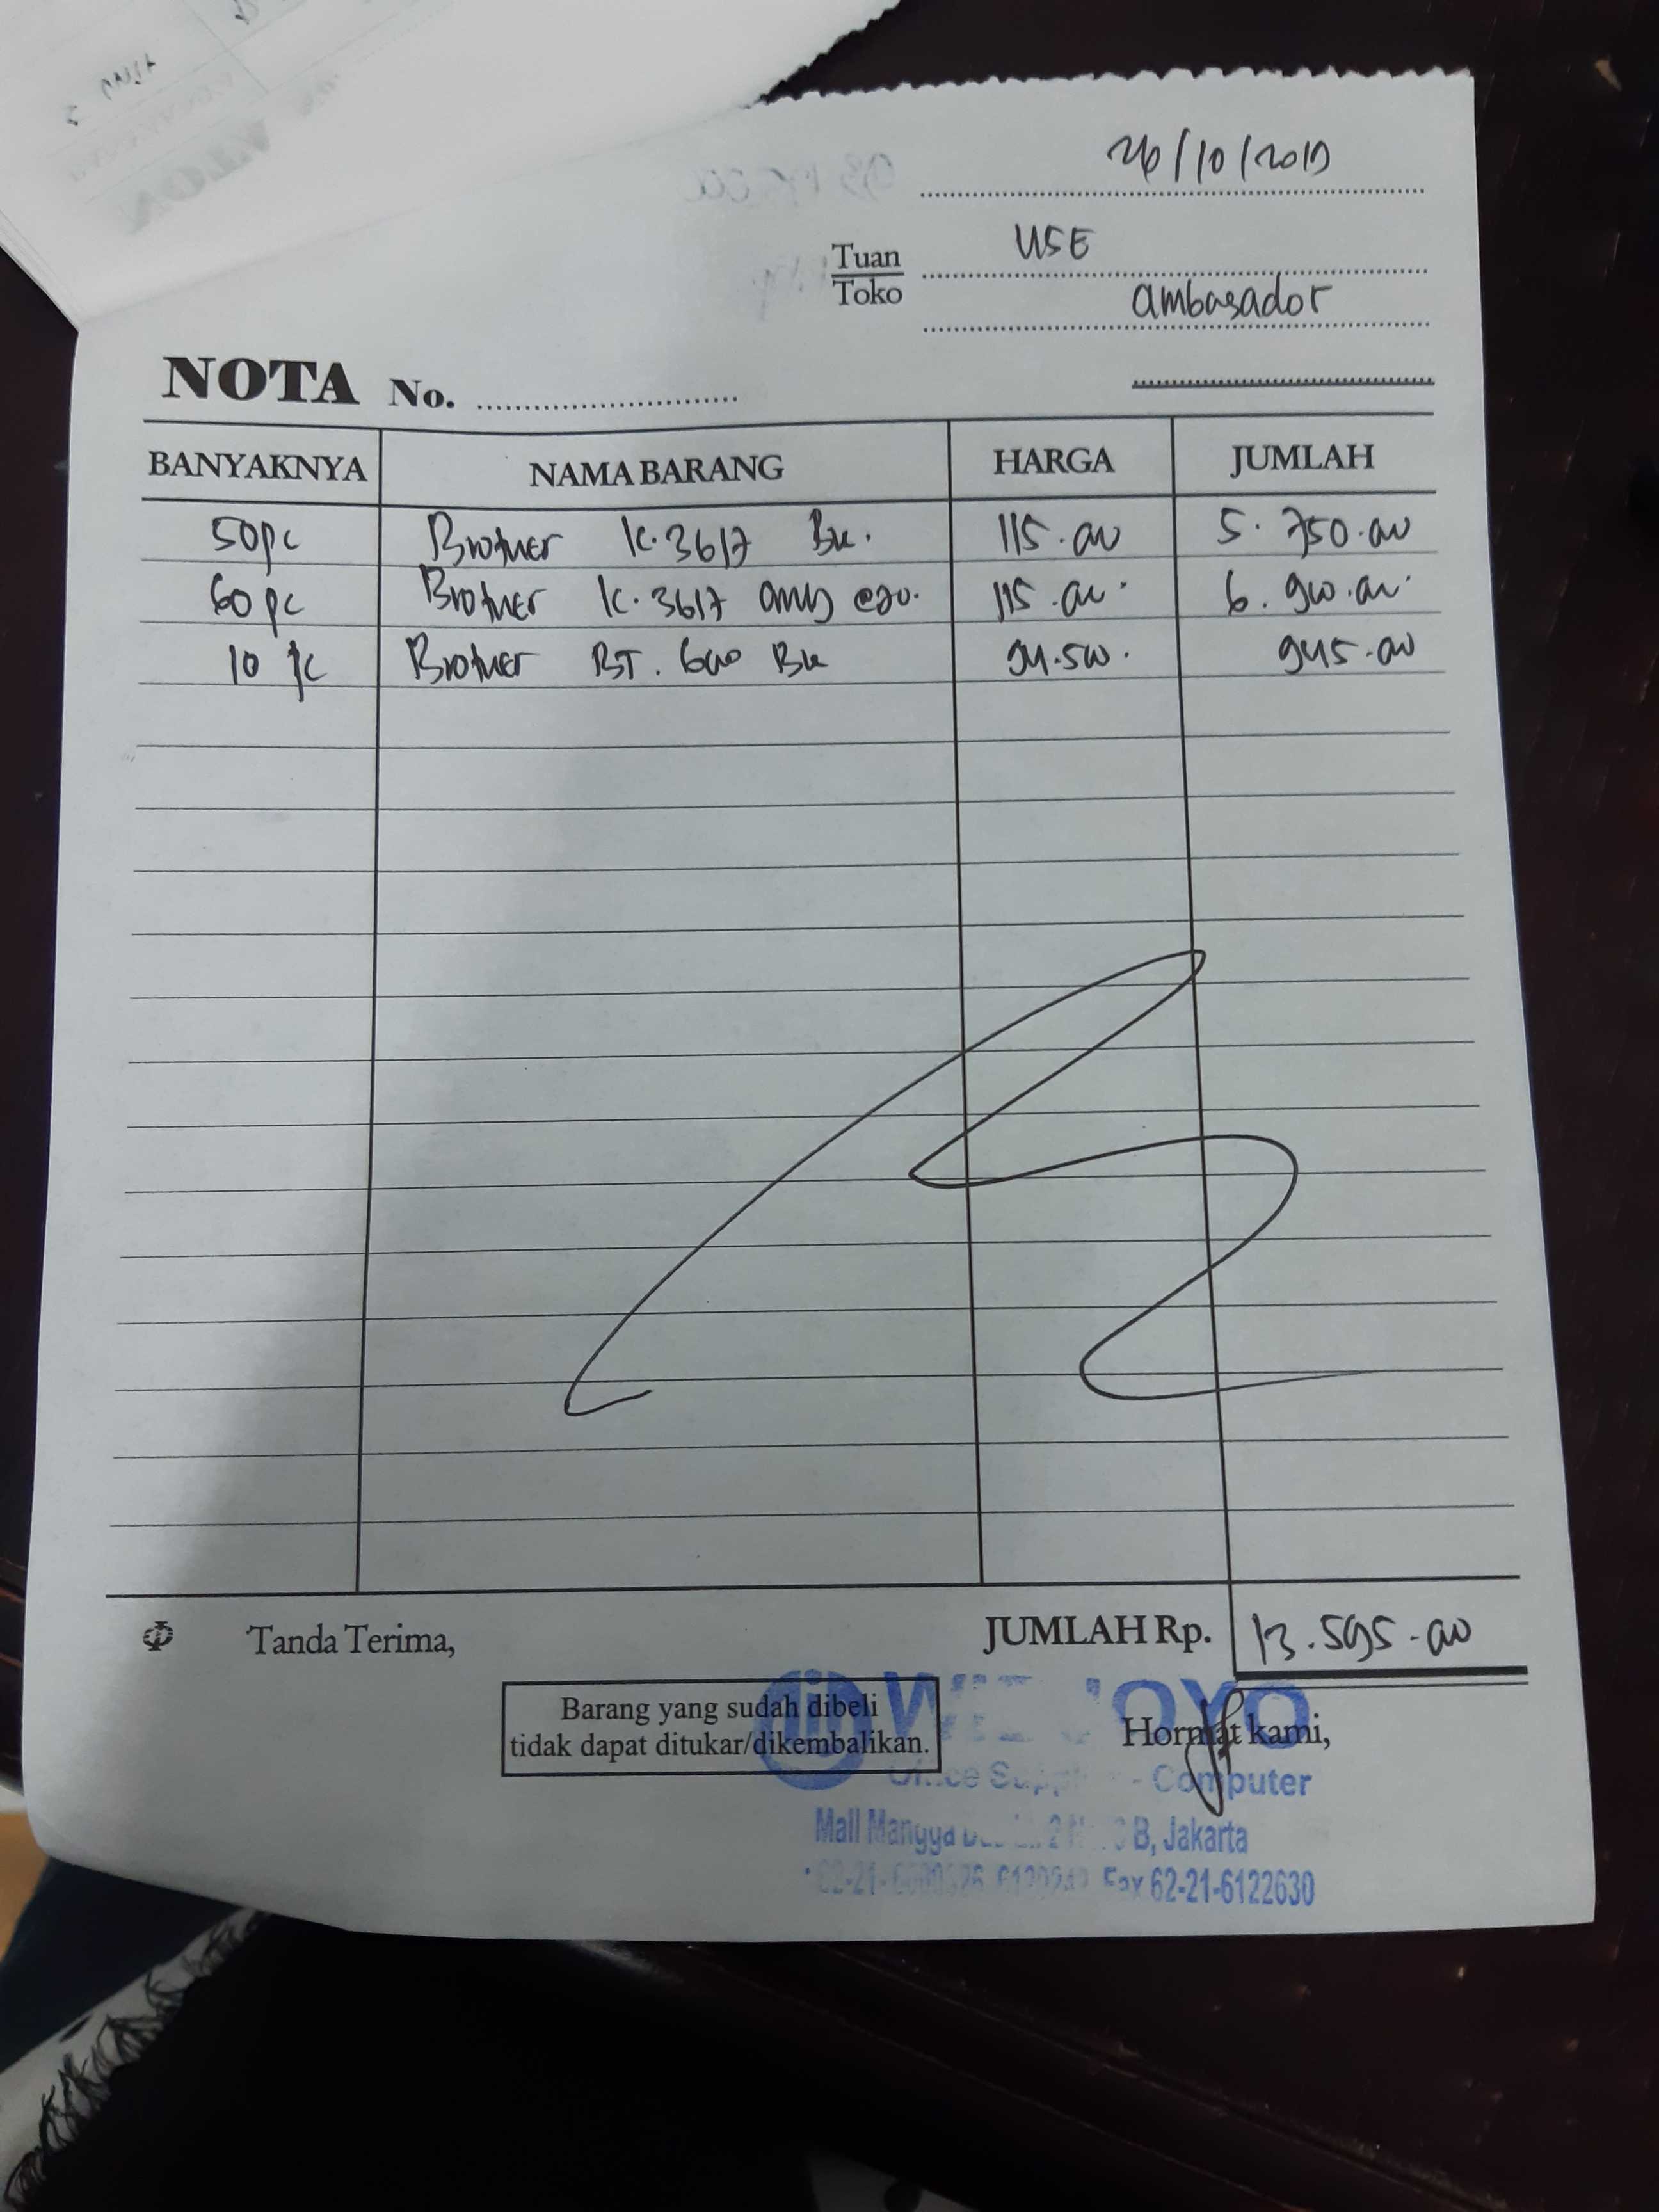 26/10/2019
Tuan
USE
Toko
ambasador
NOTA No.
BANYAKNYA NAMA BARANG HARGA JUMLAH
50pc Brother lc.3617 Bk. 115.000 5.750.000
60pc Brother lc.3617 115.000 6.900.000
10 pc Brother BT.6000 Bk 94.500. 945.000
Tanda Terima, JUMLAH Rp. 13.595.000
Barang yang sudah dibeli
tidak dapat ditukar/dikembalikan.
Hormat kami,
Office Computer
Mall Mangga B, Jakarta
Fax 62-21-6122630